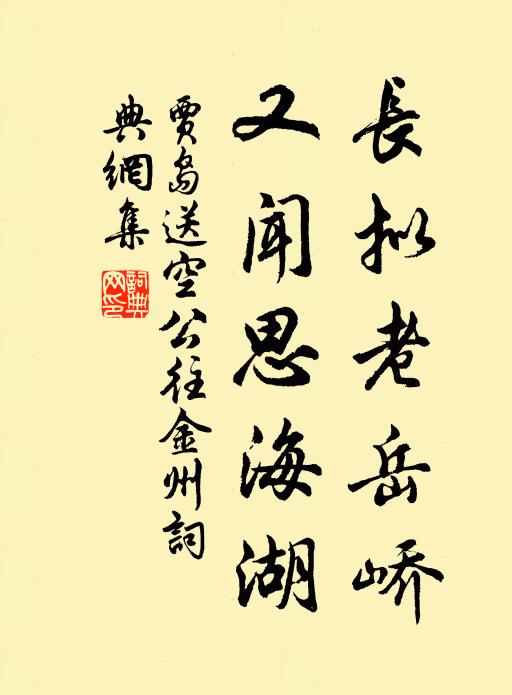 長拟老岳峤
又闻思海湖
賈岛送空公往金州詞
典網集
詞典网印